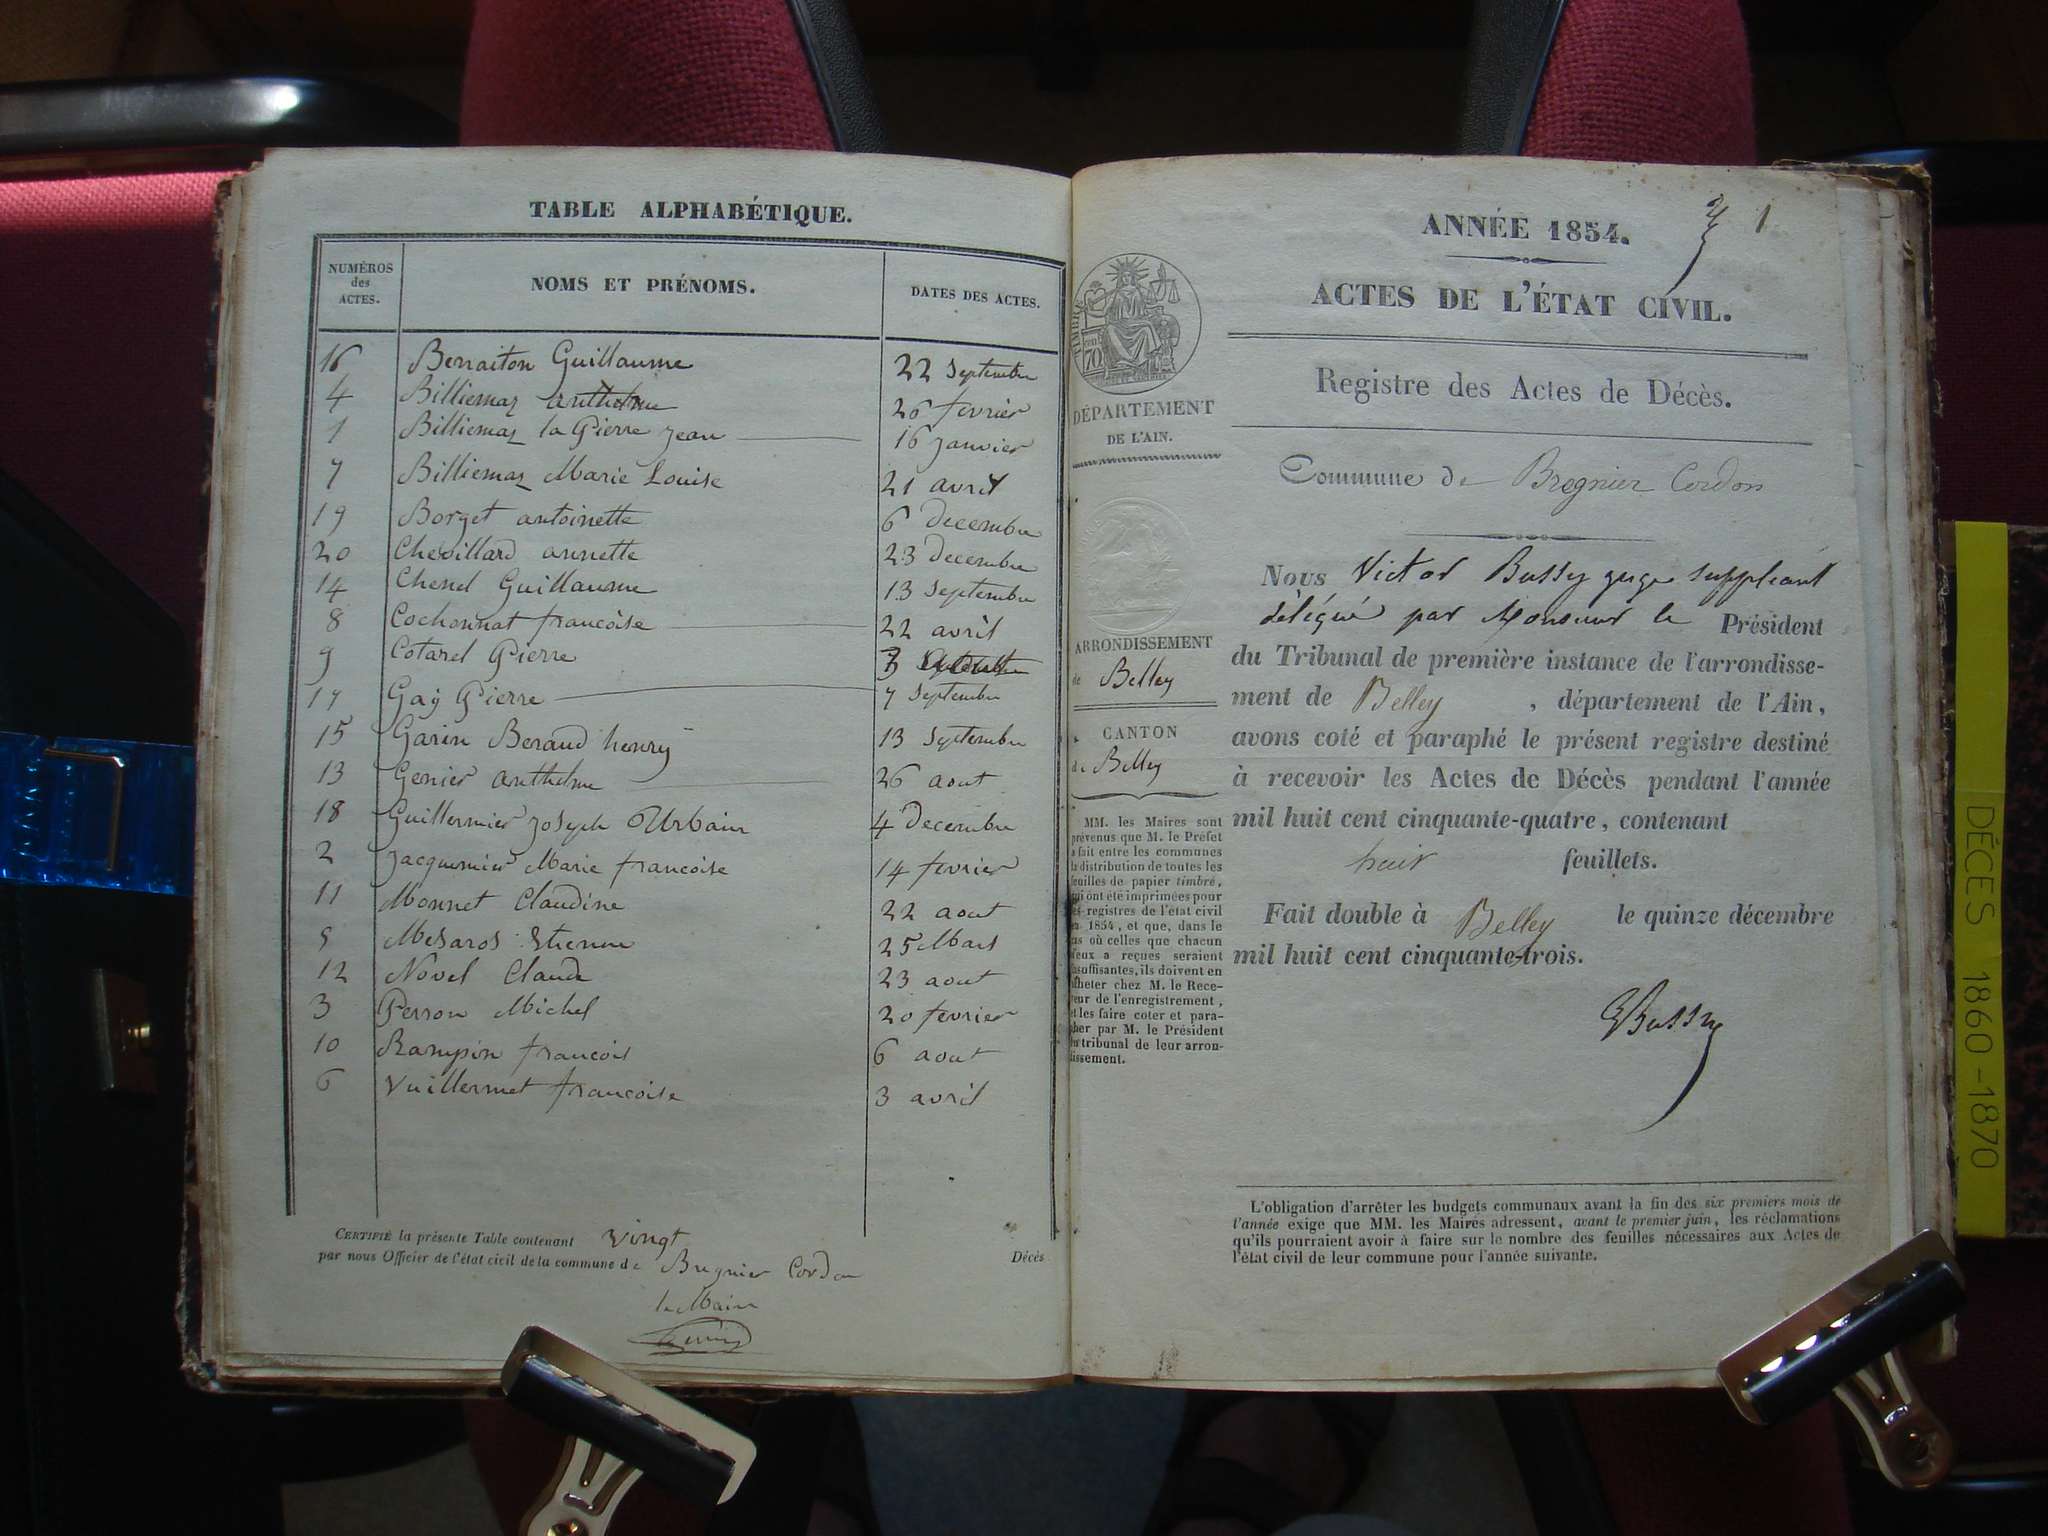 TABLE ALPHABÉTIQUE.
NUMÉROS des ACTES. NOMS ET PRÉNOMS. DATES DES ACTES.
16 Berraiton Guillaume 22 Septembre
4 Billiemaz anthelme 26 fevrier
1 Billiemaz la Pierre Jean 16 janvier
7 Billiemaz Marie Louise 21 avril
19 Borget antoinette 6 decembre
20 Chevillard annette 23 decembre
14 Chenel Guillaume 13 Septembre
8 Cochonnat francoise 22 avril
9 Cotarel Pierre 3
17 Gaÿ Pierre 7 Septembre
15 Garin Beraud henrÿ 13 Septembre
13 Genier anthelme 26 aout
18 Guillermier joseph Urbain 4 decembre
2 Jacquemier Marie francoise 14 fevrier
11 Monnet Claudine 22 aout
5 Mesaros Etienne 25 Mars
12 Novel Claude 23 aout
3 Perron Michel 20 fevrier
10 Rampin francois 6 aout
6 Vuillermet francoise 3 avril
CERTIFIÉ la présente Table contenant vingt Décès
par nous Officier de l'état civil de la commune de Bregnier Cordon
le Maire
1
ANNÉE 1854.
ACTES DE L'ÉTAT CIVIL.
Registre des Actes de Décès.
TIMBRE
70
DÉPARTEMENT
DE L'AIN.
Commune de Bregnier Cordon
ARRONDISSEMENT
de Belley
CANTON
de Belley
MM. les Maires sont
prévenus que M. le Préfet
a fait entre les communes
la distribution de toutes les
feuilles de papier timbré,
qui ont été imprimées pour
les registres de l'état civil
en 1854, et que, dans le
cas où celles que chacun
d'eux a reçues seraient
insuffisantes, ils doivent en
acheter chez M. le Rece-
veur de l'enregistrement,
et les faire coter et para-
pher par M. le Président
du tribunal de leur arron-
dissement.
Nous Victor Bussy juge suppléant
délégué par Monsieur le Président
du Tribunal de première instance de l'arrondisse-
ment de Belley, département de l'Ain,
avons coté et paraphé le présent registre destiné
à recevoir les Actes de Décès pendant l'année
mil huit cent cinquante-quatre, contenant
huit feuillets.
Fait double à Belley le quinze décembre
mil huit cent cinquante-trois.
VBussy
L'obligation d'arrêter les budgets communaux avant la fin des six premiers mois de
l'année exige que MM. les Maires adressent, avant le premier juin, les réclamations
qu'ils pourraient avoir à faire sur le nombre des feuilles nécessaires aux Actes de
l'état civil de leur commune pour l'année suivante.
DÉCES 1860-1870